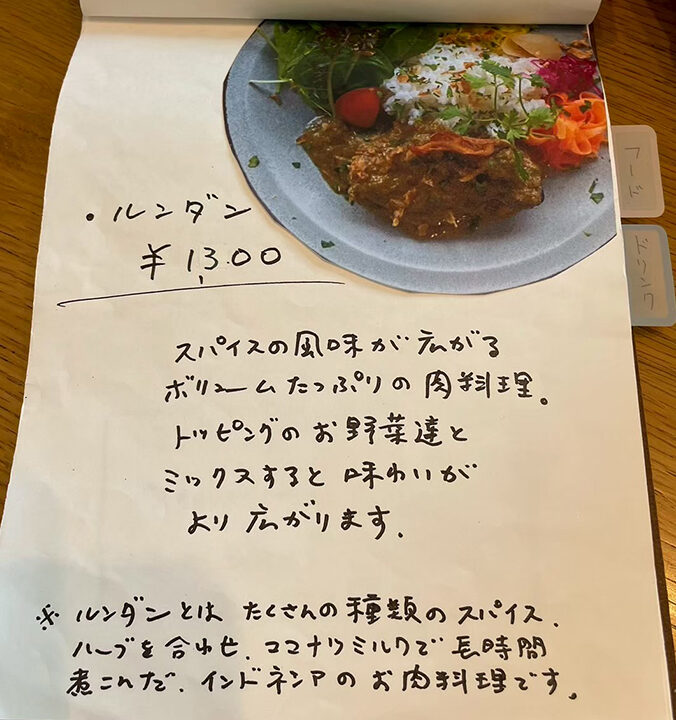 ・ルンダン
¥1,300
スパイスの風味が広がる
ボリュームたっぷりの肉料理。
トッピングのお野菜達と
ミックスすると味わいが
より広がります。
※ルンダンとはたくさんの種類のスパイス、
ハーブを合わせ、ココナツミルクで長時間
煮こんだ、インドネシアのお肉料理です。
フード
ドリンク